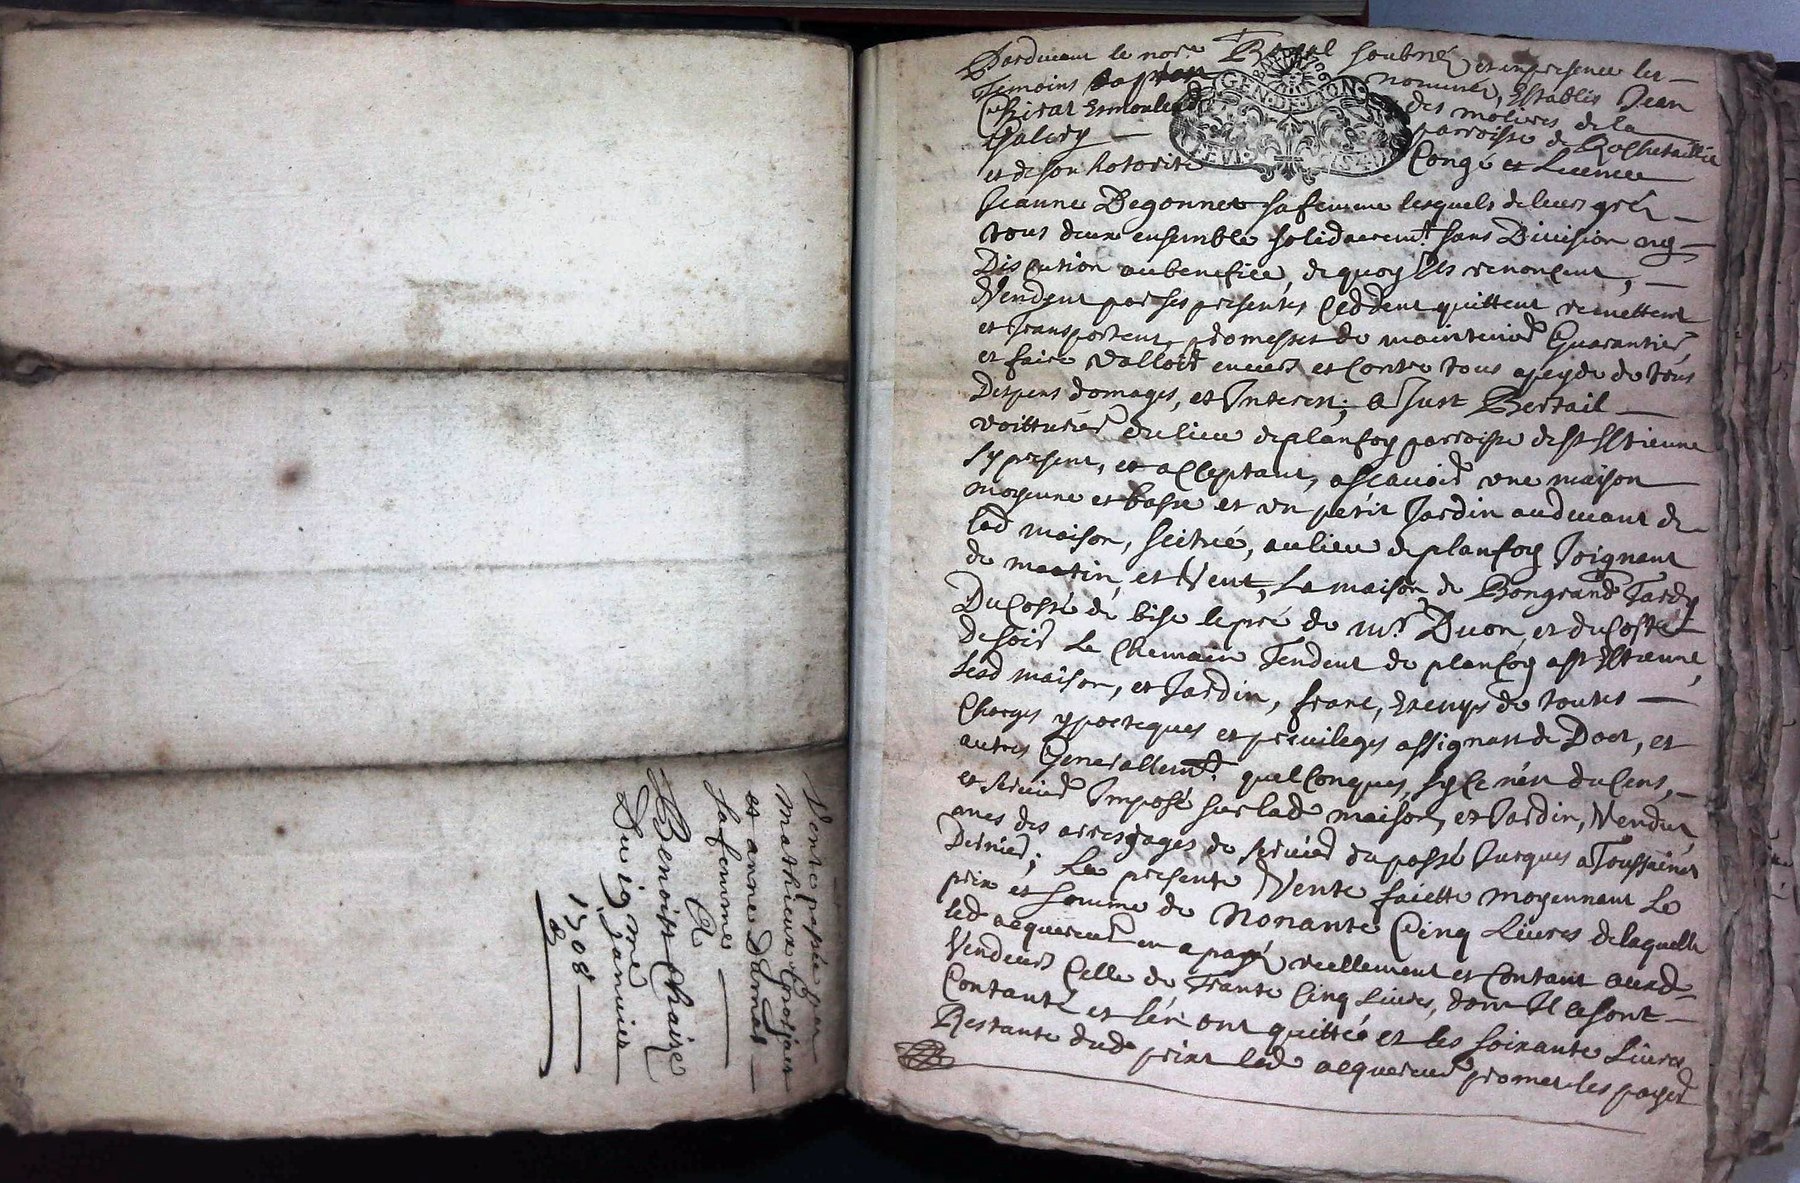 Vente passée par
mathieux Grosjean
et anne Darnas
sa femme
A
Benoist Chaize
Du ig me janvier
1708
Pardevant le nore Royal soubné et en presence les
Temoins nommes, Establis Jean
Chirat Esmouleur des molieres de la
Valery parroisse de Rochetaillée
et de son hotorité Congé et Licence
Jeanne Degonnet sa femme lesquels de leurs gré
tous deux ensemble solidairemt sans Division ny
Discution au benefice, de quoy Ils renoncent,
Vendent par ses presentes Ceddent quittent remettent
et Transportent, promesses de maintenir Guarantir
et faire valloir envers et Contre tous a peyde de tous
Despens domages, et Interest; A Just Bertail
voitturier du lieu de planfoy parroisse de st Estienne
sy present, et acceptant, ascavoir une maison
moyenne et basse et un petit Jardin au devant de
lad maison, scitué, au lieu de planfoy Joignant
de matin, et Vent, La maison de Bongrand Tardy
Du Costé de bise le pré de mr Duon, et du Costé
De soir Le Chemain Tendent de planfoy a st Estienne,
lesd maison, et Jardin, franc, Exemps de toutes
Charges ypoteques et privileges assignatt de Doct, et
autres Generallemt quelConques, sy Ce n'est du Cens,
et servis Imposé sur lad maison, et Jardin, Vendus
aves des arresrages de servis du passé Jusques a Toussaints
Dernier; La presente Vente faiette moyennant Le
prix et somme de Nonante Cinq Livres de laquelle
led acquereur en a payé reellement et Contant ausd
Vendeurs Celle de Trante Cinq Livres, dont Il se sont
Contanté et l'en ont quitté et les soixante Livres
Restante dud prix led acquereur promet les payer